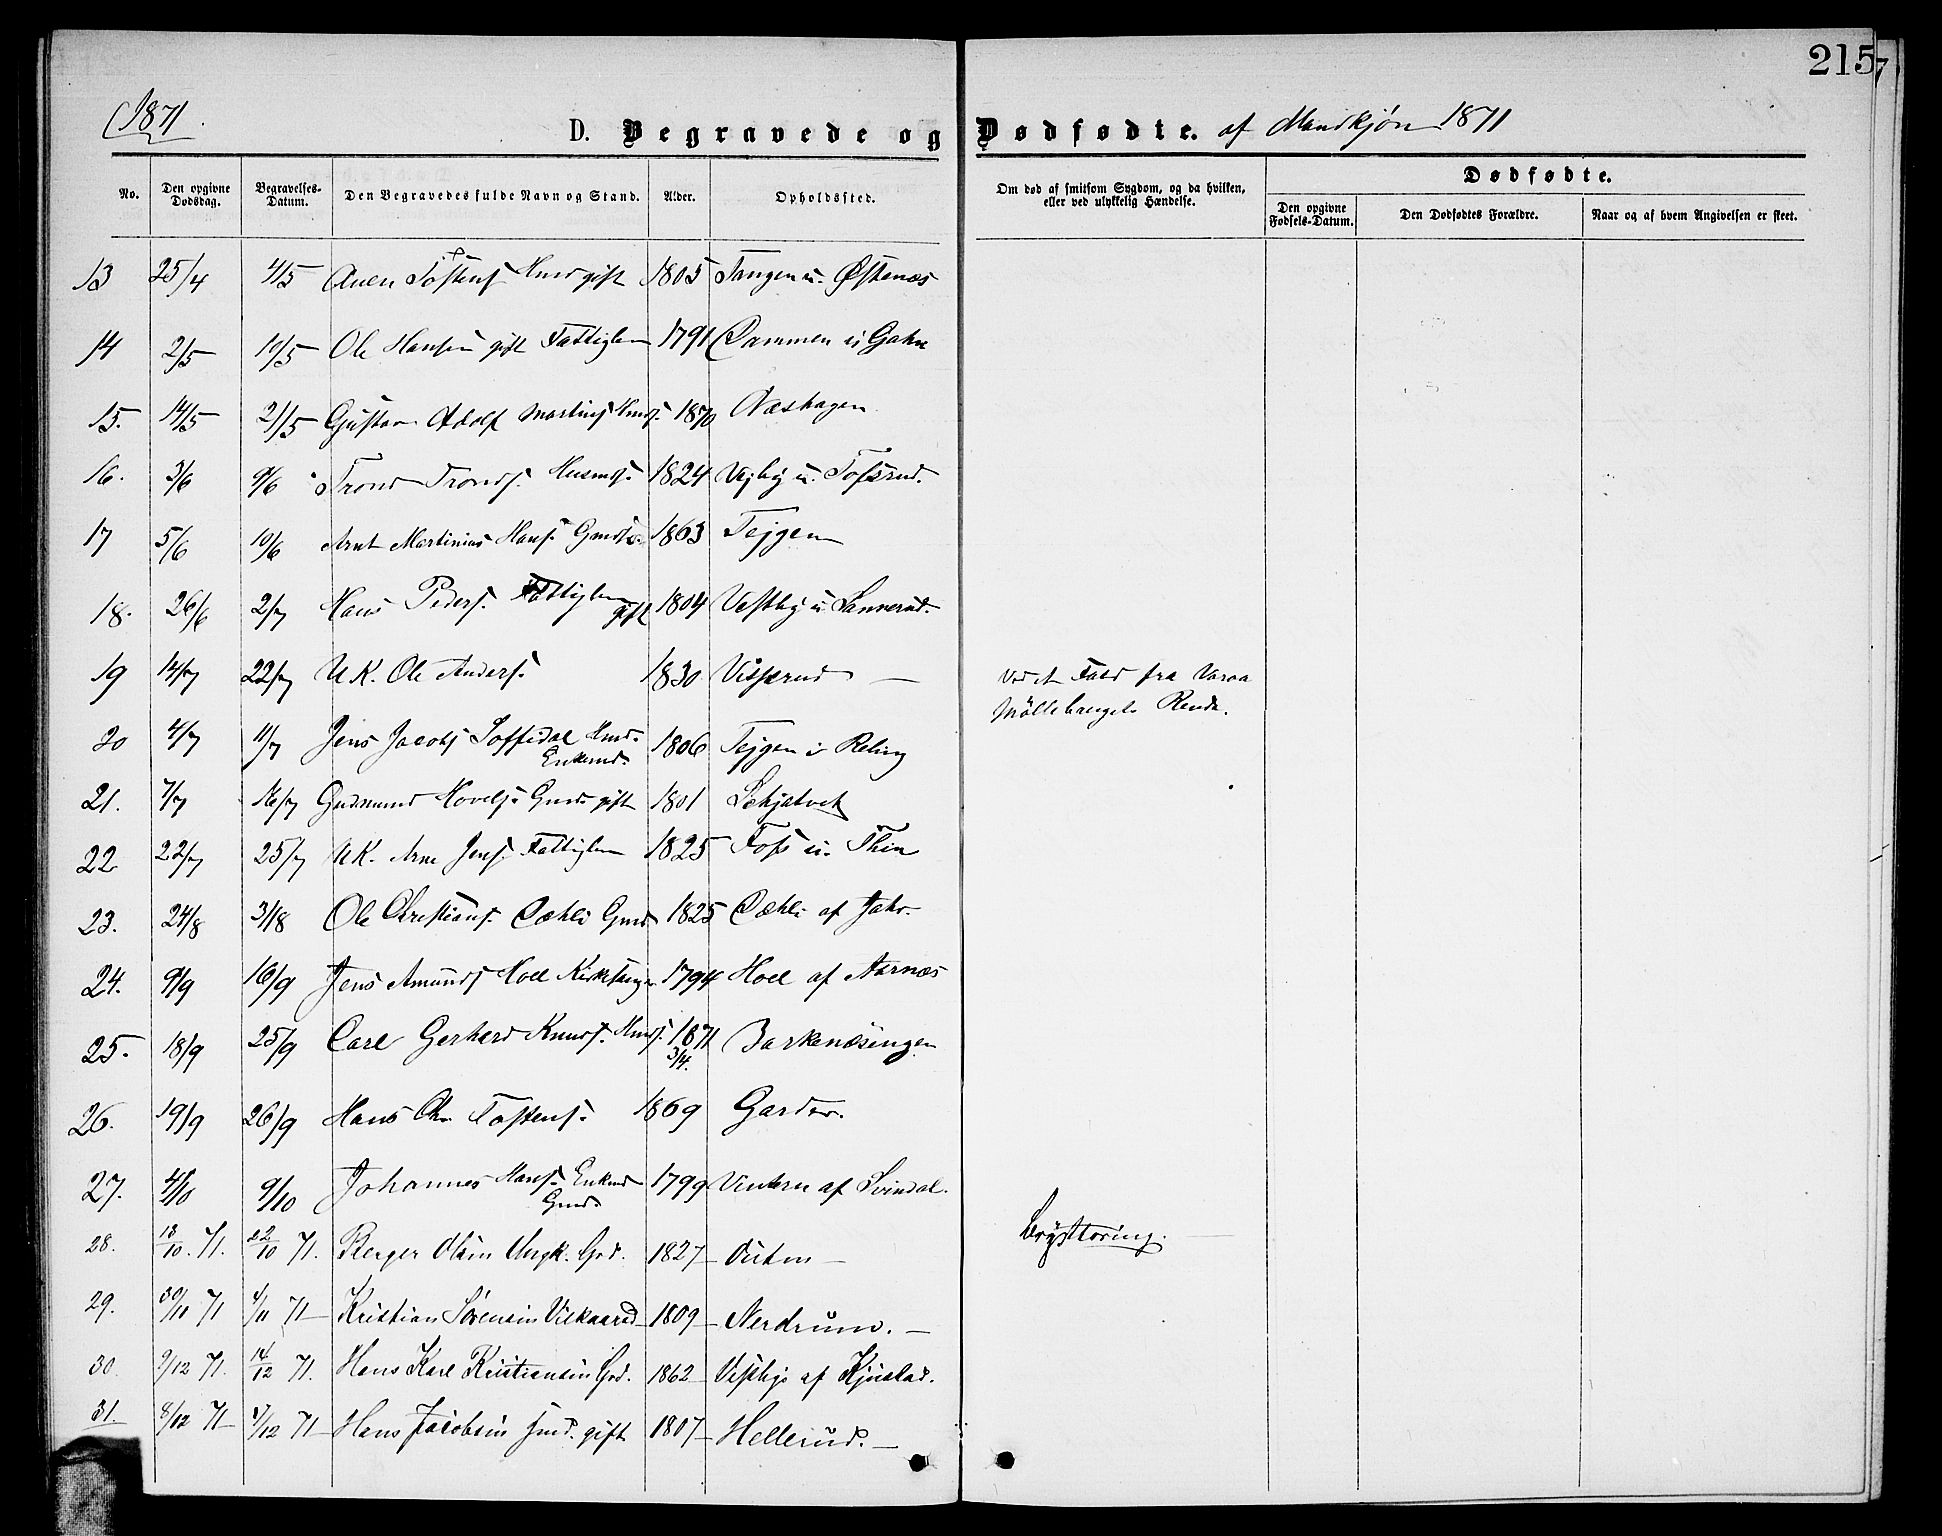 215
1871.
D. Begravede og Dødfødte. af Mandkjøn 1871
No. Den opgivne Dødsdag. Begravelses-Datum. Den Begravedes fulde Navn og Stand. Alder. Opholdssted. Om død af smitsom Sygdom, og da hvilken, eller ved ulykkelig Hændelse. Dødfødte.
Den opgivne Fødsels-Datum. Den Dødfødtes Forældre. Naar og af hvem Angivelsen er skeet.
13 25/4 4/5 Tostens Hmd gift 1805 Tangen u. Østenæs
14 2/5 10/5 Ole Hansen gift Fattiglem 1791 Dammen u Gahn
15. 14/5 21/5 Gustav Adolf Martins Hmds. 1870 Næshagen
16. 3/6 9/6 Trond Tronds. Husmds. 1824 Vejby u. Tofsrud.
17 5/6 10/6 Arnt Martinius Hans. 1863 Tejgen
18. 26/6 2/7 Hans Peders. Fattiglem gift 1804 Vestby u Sannerud.
19 14/7 22/7 U.K. Ole Anders. 1830 Visperud — Ved et Fald fra Varaa
Møllebrugets Rende.
20 4/7 11/7 Jens Jacobs Toffedal Hmd. Enkemd. 1806 Tejgen i Reling
21. 7/7 16/7 Gudmund Hovels. Gmd. gift 1801
22 22/7 25/7 U.K. Arne Jens. Fattiglem 1825 Foss u. Thien
23. 24/8 31/8 Ole Christians. Dæhli Gmd 1825 Dæhli af Jahr.
24. 9/9 16/9 Jens Amunds Hoel Kirkesanger 1794 Hoel af Aarnæs
25. 18/9 25/9 Carl Gerhard Knuds. Hmds. 1871 3/4. Barkenæsengen
26. 19/9 26/9 Hans Chr. Tostens. 1869 Garder.
27. 4/10 9/10 Johannes Hans. Enkmd Gmd. 1799 Vinteren af Svindal.
28. 13/10. 71. 22/10 71. Berger Olsen Ungk. Grd. 1827 — — Brysttæring. —
29. 30/11 71 4/11 71 — Kristian Sørensen Vilkaarsd 1809 — Nerdrum. —
30 9/12 71. 14/12 71. Hans Karl Kristiansen Grd. 1862 Vestby af Kjustad.
31. 8/12 71 — 17/12 71 — Hans Jacobsen Gmd. gift 1807 — Hellerud. —